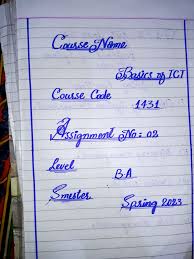 Course Name
Basics of ICT
Course Code
1431
Assignment No: 02
Level
B.A
Smester
Spring 2023